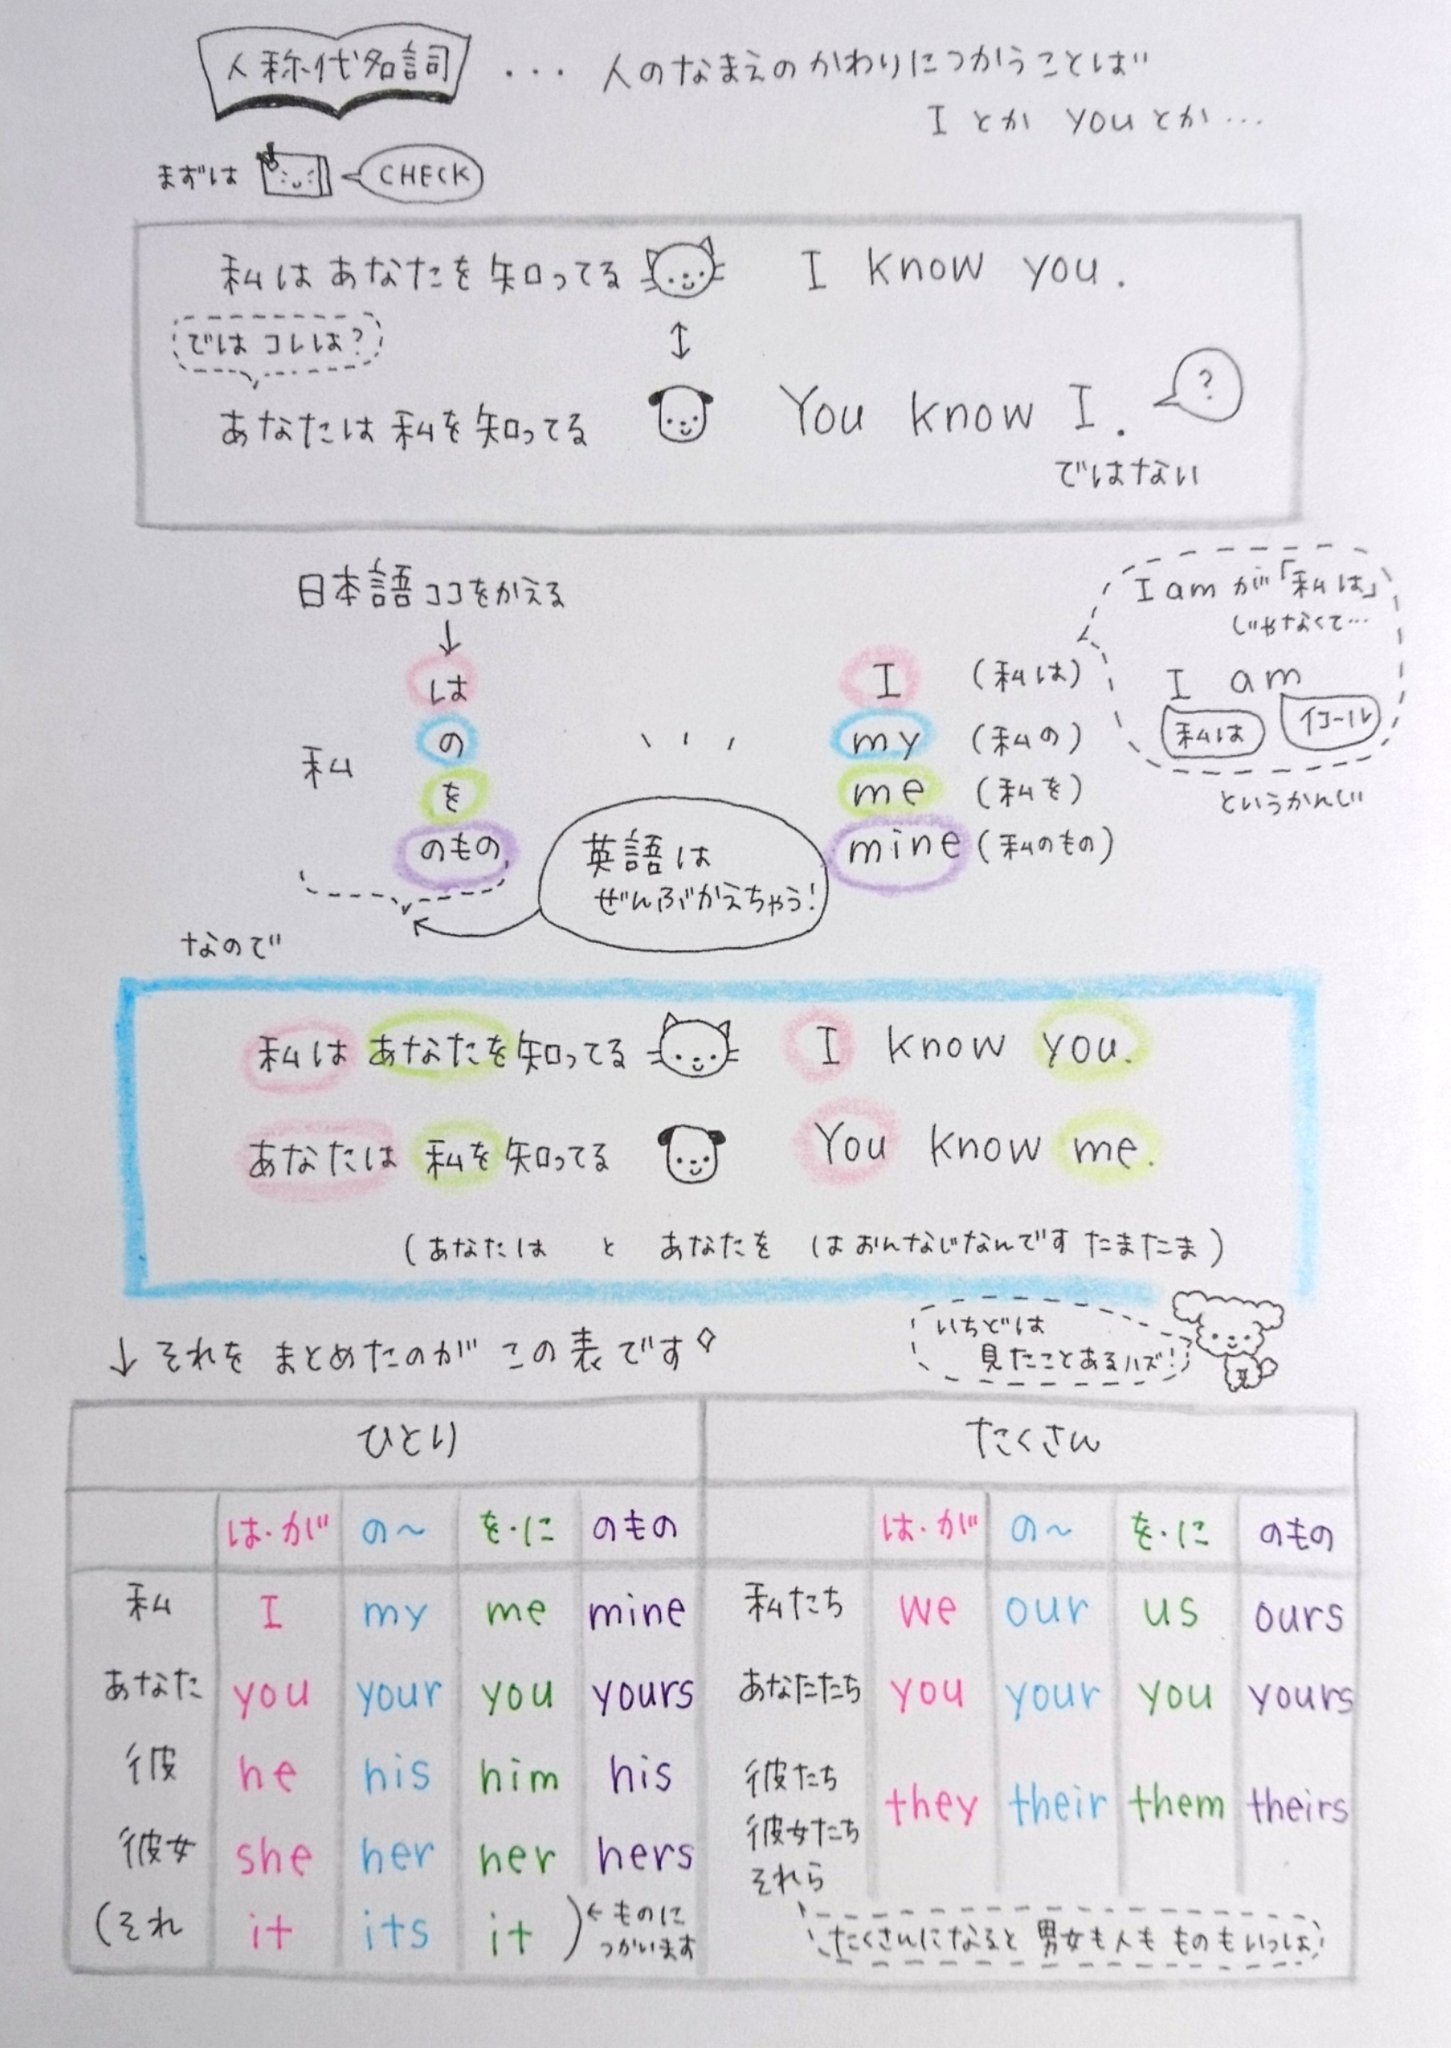 人称代名詞 ・・・ 人のなまえのかわりにつかうことば
I とか you とか…
まずは CHECK
私は あなたを 知ってる I know you.
では コレは?
あなたは 私を 知ってる You know I. ?
ではない
日本語 ココをかえる
I am が「私は」
じゃなくて…
I am
私は イコール
というかんじ
私
は
の
を
のもの
I (私は)
my (私の)
me (私を)
mine (私のもの)
英語は
ぜんぶかえちゃう!
なので
私は あなたを 知ってる I know you.
あなたは 私を 知ってる You know me.
(あなたは と あなたを は おんなじなんです たまたま)
↓ それを まとめたのが この表です
いちどは
見たことあるハズ!
ひとり たくさん
は・が の〜 を・に のもの は・が の〜 を・に のもの
私 I my me mine 私たち we our us ours
あなた you your you yours あなたたち you your you yours
彼 he his him his 彼たち
彼女たち
それら they their them theirs
彼女 she her her hers
(それ it its it ) ←ものに
つかいます
たくさんになると 男女も人も ものもいっしょ